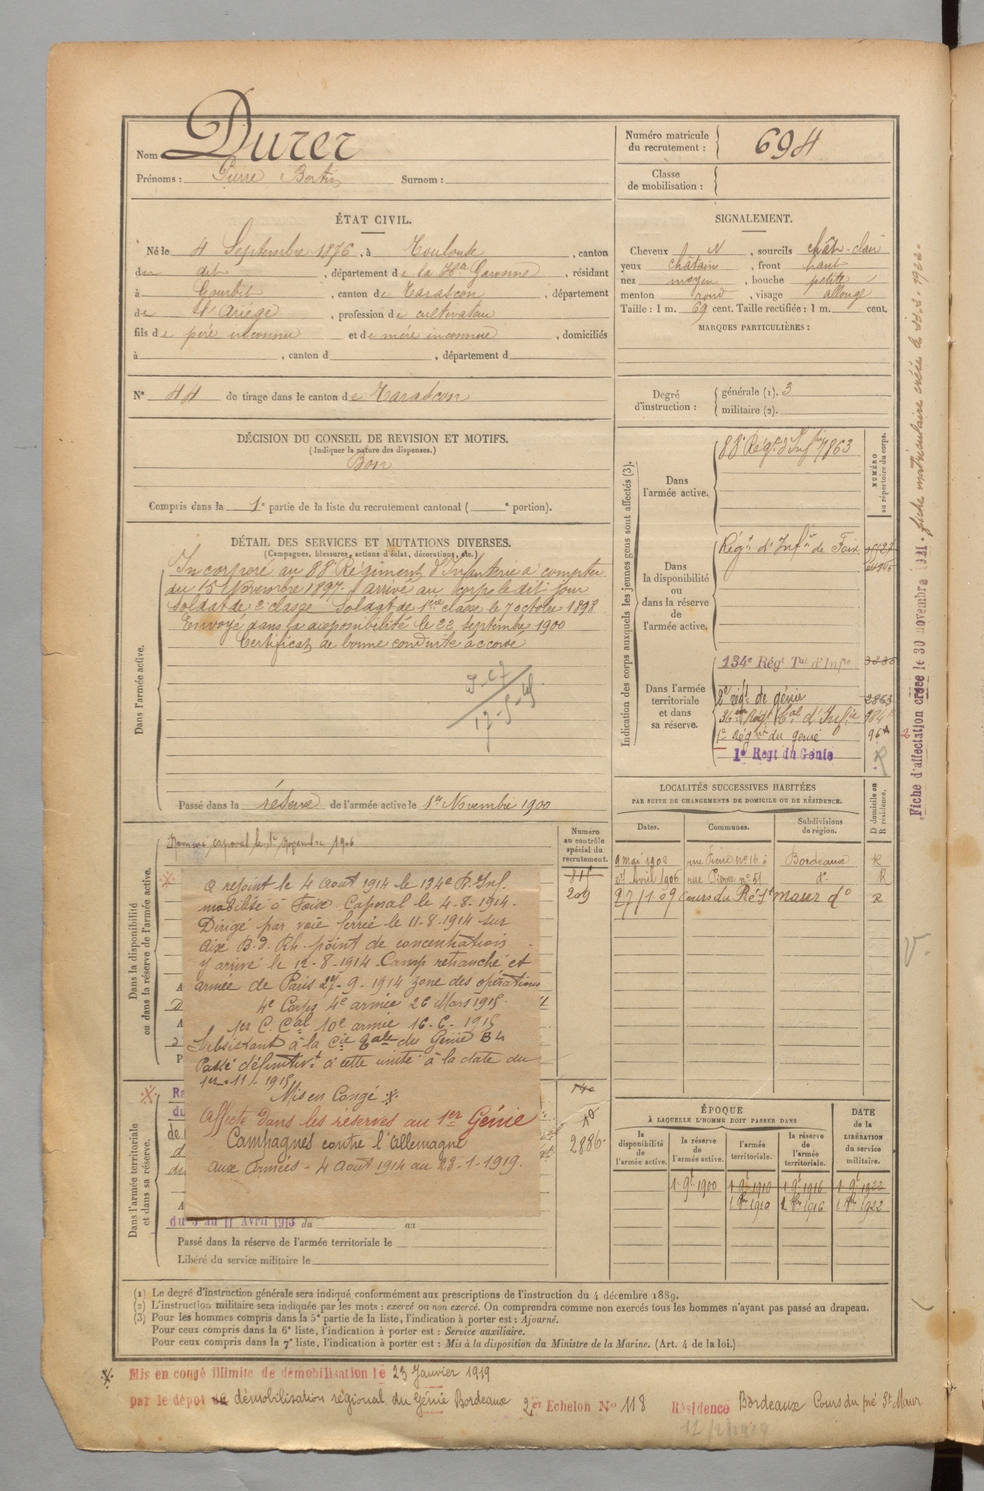 Nom Durer
Prénoms : Pierre Bertin Surnom :
Numéro matricule du recrutement : 694
Classe de mobilisation :
ÉTAT CIVIL.
Né le 4 Septembre 1876, à Toulouse, canton
dudit, département de la Hte Garonne, résidant
à Gourbit, canton de Tarascon, département
de l'Ariège, profession de cultivateur
fils de père inconnu et de mère inconnue, domiciliés
à , canton d , département d
N° 44 de tirage dans le canton de Tarascon
SIGNALEMENT.
Cheveux N, sourcils chât-clair
yeux châtain, front haut
nez moyen, bouche petite
menton rond, visage allongé
Taille : 1 m. 69 cent. Taille rectifiée : 1 m. cent.
MARQUES PARTICULIÈRES :
Degré d'instruction : générale (1). 3
militaire (2).
DÉCISION DU CONSEIL DE REVISION ET MOTIFS.
(Indiquer la nature des dispenses.)
Bon
Compris dans la 1e partie de la liste du recrutement cantonal ( e portion).
DÉTAIL DES SERVICES ET MUTATIONS DIVERSES.
(Campagnes, blessures, actions d'éclat, décorations, etc.)
Dans l'armée active.
Incorporé au 88e Régiment d'Infanterie à compter
du 15 Novembre 1897. Arrivé au corps le dit jour
soldat de 2e classe. Soldat de 1ère classe le 7 octobre 1898
Envoyé dans la disponibilité le 22 septembre 1900
Certificat de bonne conduite accordé
Passé dans la réserve de l'armée active le 1er Novembre 1900
Indication des corps auxquels les jeunes gens sont affectés (3).
NUMÉRO au répertoire du corps.
Dans l'armée active.
88e Régt d'Infie 7863
Dans la disponibilité ou dans la réserve de l'armée active.
Régnt d'Infie de Foix
Dans l'armée territoriale et dans sa réserve.
134e Régt Tal d'Infie
2e régt de génie 2863
36e Régt Cal d'Infie
1e Régnt du génie
1er Regt du Génie R
LOCALITÉS SUCCESSIVES HABITÉES
PAR SUITE DE CHANGEMENTS DE DOMICILE OU DE RÉSIDENCE.
Dates. Communes. Subdivisions de région. D domicile ou R résidence.
9 mai 1902 rue n° 16 à Bordeaux R
27 Avril 1906 rue n° 51 do R
27/1 09 Cours du Pré St Maur do R
Dans la disponibilité ou dans la réserve de l'armée active.
Numéro au contrôle spécial du recrutement.
Nommé caporal le 1er Novembre 1906
209
A rejoint le 4 Août 1914 le 134e R. Inf.
mobilisé à Foix. Caporal le 4-8-1914.
Dirigé par voie ferrée le 11-8-1914 sur
Aix B. d. Rh. point de concentration
y arrivé le 12-8-1914. Camp retranché et
armée de Paris 27-9-1914 zone des opérations
4e Corps 4e armée 26 Mars 1915.
1er C. Cal 10e armée 16-6-1915
Subsistant à la Cie du Génie
Passé définitivt à cette unité à la date du
1er-11-1915
Mis en Congé ※
Affecté dans les réserves au 1er Génie
Campagnes contre l'Allemagne
aux Armées - 4 Août 1914 au 23-1-1919.
Dans l'armée territoriale et dans sa réserve.
2886
du 3 au 11 Avril 1913 du au
Passé dans la réserve de l'armée territoriale le
Libéré du service militaire le
ÉPOQUE
À LAQUELLE L'HOMME DOIT PASSER DANS
la disponibilité de l'armée active. la réserve de l'armée active. l'armée territoriale. la réserve de l'armée territoriale. DATE de la LIBÉRATION du service militaire.
1 9e 1900 1 9e 1910 1 9e 1916 1 9e 1922
1 8re 1910 1 8re 1916 1 8re 1922
(1) Le degré d'instruction générale sera indiqué conformément aux prescriptions de l'instruction du 4 décembre 1889.
(2) L'instruction militaire sera indiquée par les mots : exercé ou non exercé. On comprendra comme non exercés tous les hommes n'ayant pas passé au drapeau.
(3) Pour les hommes compris dans la 5e partie de la liste, l'indication à porter est : Ajourné.
Pour ceux compris dans la 6e liste, l'indication à porter est : Service auxiliaire.
Pour ceux compris dans la 7e liste, l'indication à porter est : Mis à la disposition du Ministre de la Marine. (Art. 4 de la loi.)
Mis en congé illimité de démobilisation le 23 Janvier 1919
par le dépôt de démobilisation régional du Génie Bordeaux 2e Echelon N° 118 Résidence Bordeaux Cours du pré St Maur
Fiche d'affectation créée le 30 novembre 1921. fiche matriculaire créée le